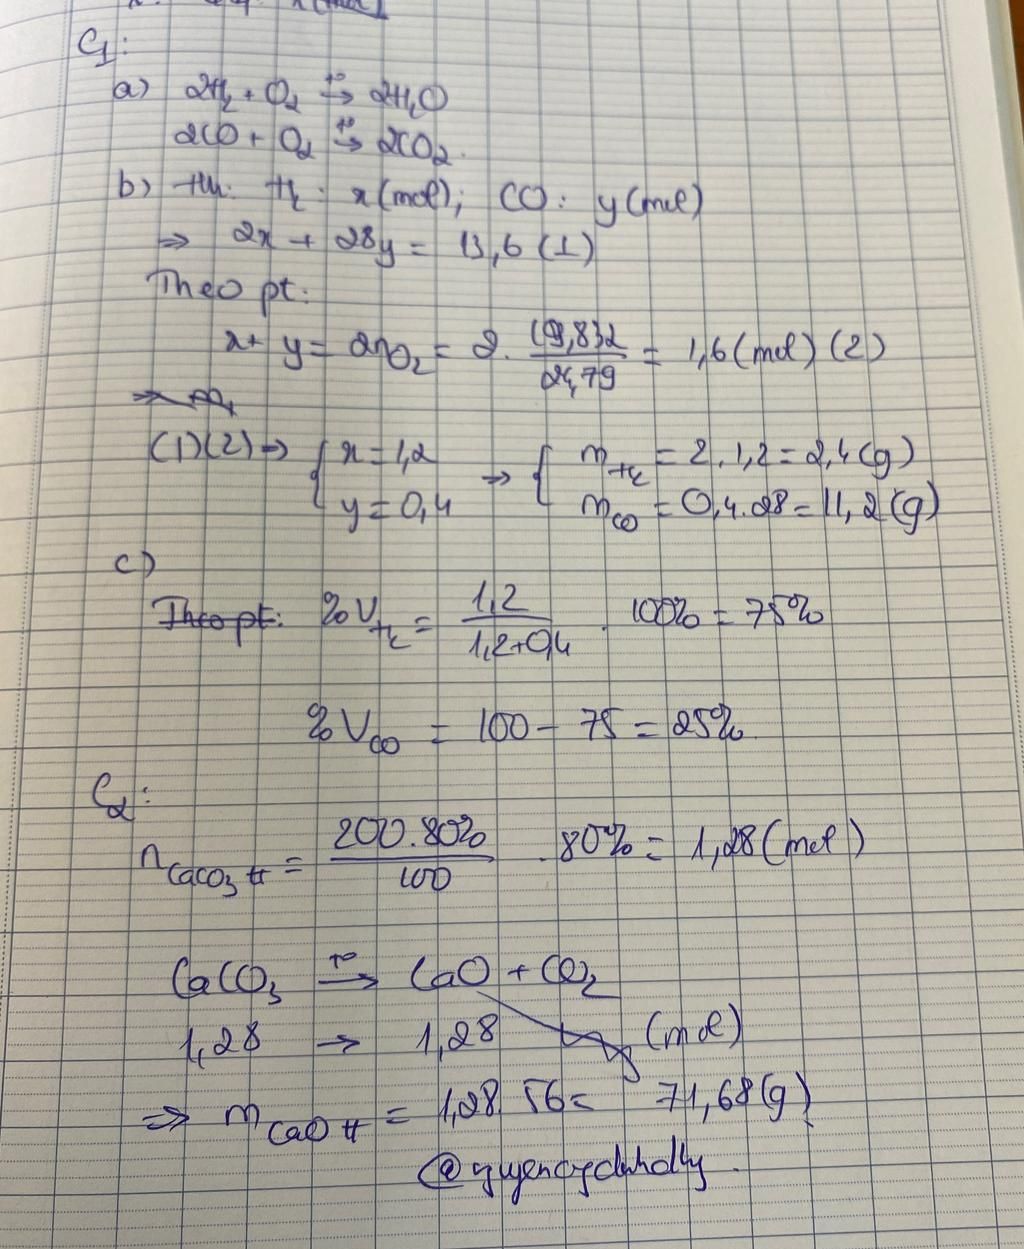 C1:
a) 2H2 + O2 t°→ 2H2O
2CO + O2 t°→ 2CO2.
b) H2: x(mol); CO: y(mol)
=> 2x + 28y = 13,6 (1)
Theo pt:
x + y = 2nO2 = 2. 19,832/24,79 = 1,6 (mol) (2)
(1)(2) => { x = 1,2 → { mH2 = 2.1,2 = 2,4(g)
y = 0,4 mCO = 0,4.28 = 11,2(g)
c)
Theo pt: %VH2 = 1,2/1,2+0,4 . 100% = 75%
%VCO = 100 - 75 = 25%.
C2:
nCaCO3 tt = 200.80%/100 . 80% = 1,28 (mol)
CaCO3 t°→ CaO + CO2
1,28 → 1,28 (mol)
=> mCaO tt = 1,28.56 = 71,68(g)